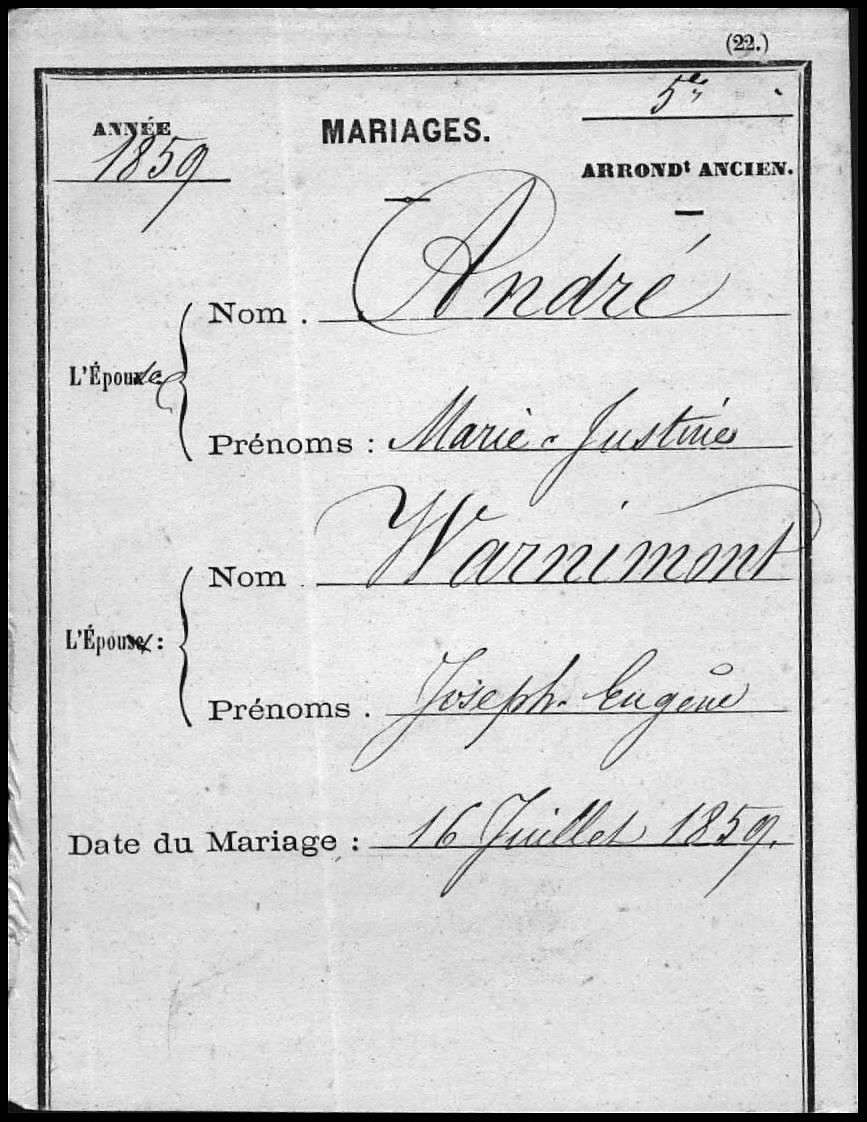 (22.)
5e
ANNÉE
1859
MARIAGES.
ARRONDt ANCIEN.
Nom . André
L'Épouse
Prénoms : Marie-Justine
Nom Warnimont
L'Époux :
Prénoms . Joseph-Eugène
Date du Mariage : 16 Juillet 1859.